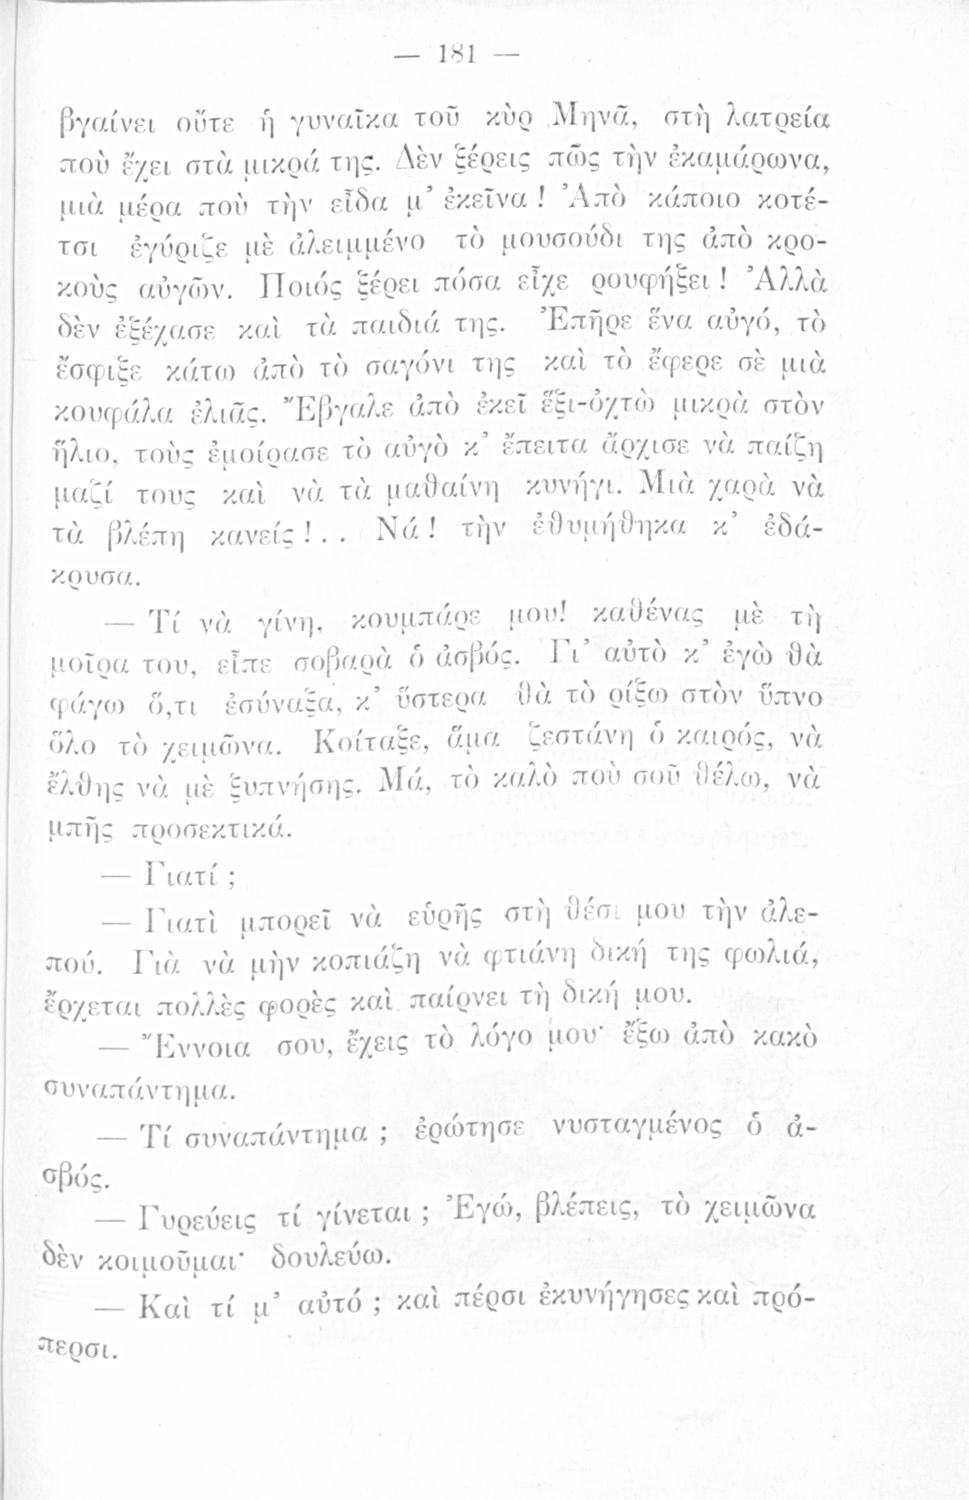 — 181 —
βγαίνει οὔτε ἡ γυναῖκα τοῦ κὺρ Μηνᾶ, στὴ λατρεία
ποὺ ἔχει στὰ μικρά της. Δὲν ξέρεις πῶς τὴν ἐκαμάρωνα,
μιὰ μέρα ποὺ τὴν εἶδα μ᾽ ἐκεῖνα ! Ἀπὸ κάποιο κοτέ-
τσι ἐγύριζε μὲ ἀλειμμένο τὸ μουσούδι της ἀπὸ κρο-
κοὺς αὐγῶν. Ποιός ξέρει πόσα εἶχε ρουφήξει ! Ἀλλὰ
δὲν ἐξέχασε καὶ τὰ παιδιά της. Ἐπῆρε ἕνα αὐγό, τὸ
ἔσφιξε κάτω ἀπὸ τὸ σαγόνι της καὶ τὸ ἔφερε σὲ μιὰ
κουφάλα ἐλιᾶς. Ἔβγαλε ἀπὸ ἐκεῖ ἕξι-ὀχτὼ μικρὰ στὸν
ἥλιο, τοὺς ἐμοίρασε τὸ αὐγὸ κ᾽ ἔπειτα ἄρχισε νὰ παίζη
μαζί τους καὶ νὰ τὰ μαθαίνη κυνήγι. Μιὰ χαρὰ νὰ
τὰ βλέπη κανείς !. . Νά ! τὴν ἐθυμήθηκα κ᾽ ἐδά-
κρυσα.
— Τί νὰ γίνη, κουμπάρε μου! καθένας μὲ τὴ
μοῖρα του, εἶπε σοβαρὰ ὁ ἀσβός. Γι᾽ αὐτὸ κ᾽ ἐγὼ θὰ
φάγω ὅ,τι ἐσύναξα, κ᾽ ὕστερα θὰ τὸ ρίξω στὸν ὕπνο
ὅλο τὸ χειμῶνα. Κοίταξε, ἅμα ζεστάνη ὁ καιρός, νὰ
ἔλθης νὰ μὲ ξυπνήσης. Μά, τὸ καλὸ ποὺ σοῦ θέλω, νὰ
μπῆς προσεκτικά.
— Γιατί ;
— Γιατὶ μπορεῖ νὰ εὑρῆς στὴ θέσι μου τὴν ἀλε-
πού. Γιὰ νὰ μὴν κοπιάζη νὰ φτιάνη δική της φωλιά,
ἔρχεται πολλὲς φορὲς καὶ παίρνει τὴ δική μου.
— Ἔννοια σου, ἔχεις τὸ λόγο μου· ἔξω ἀπὸ κακὸ
συναπάντημα.
— Τί συναπάντημα ; ἐρώτησε νυσταγμένος ὁ ἀ-
σβός.
— Γυρεύεις τί γίνεται ; Ἐγώ, βλέπεις, τὸ χειμῶνα
δὲν κοιμοῦμαι· δουλεύω.
— Καὶ τί μ᾽ αὐτό ; καὶ πέρσι ἐκυνήγησες καὶ πρό-
περσι.